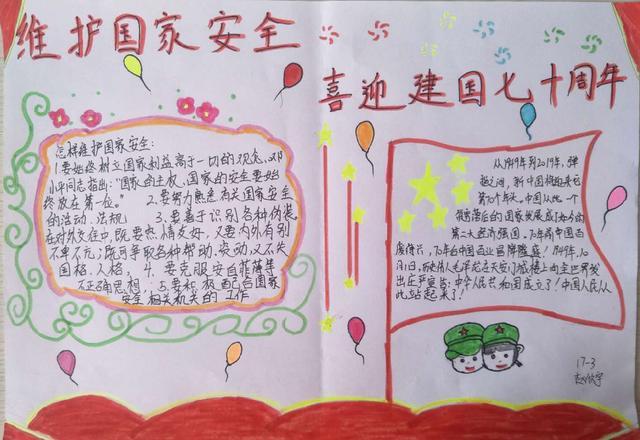 维护国家安全
喜迎建国七十周年
怎样维护国家安全:
1.要始终树立国家利益高于一切的观念,邓
小平同志指出:"国家的主权,国家的安全要始
终放在第一位。" 2.要努力熟悉有关国家安全
的法动.法规 3.要善于识别各种伪装,
在对外交往中,既要热情友好,又要内外有别
不卑不亢;既可争取各种帮助,资动,又不失
国格.人格, 4.要克服妄自菲薄等
不正确思想,5.要积极配合国家
安全相关机关的工作
从1949年到2019年,弹
指之间,新中国将迎来它
第70个年头.中国从一个
贫穷落后的国家发展成了如今的
第二大经济强国。70年前中国百
废待兴,70年后中国百业
1949年10
月1日,毛泽东在天安门城楼上向全世界发
出庄严宣告:中华人民共和国成立了!中国人民从
此站起来了!
17-3